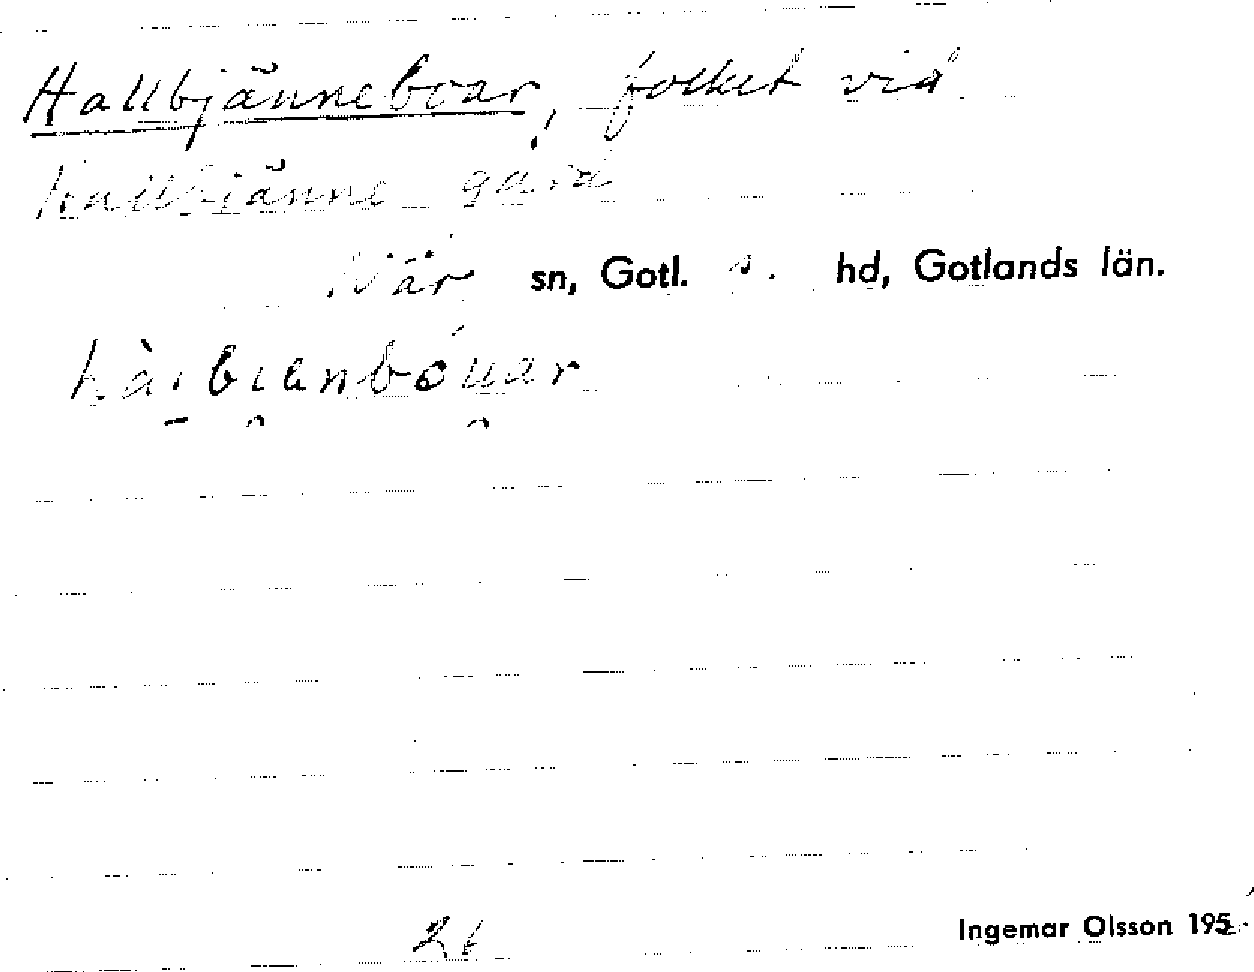 Hallbjänneboar, folket vid
Hallbjänne gård
När sn, Gotl. s. hd, Gotlands län.
26
Ingemar Olsson 195